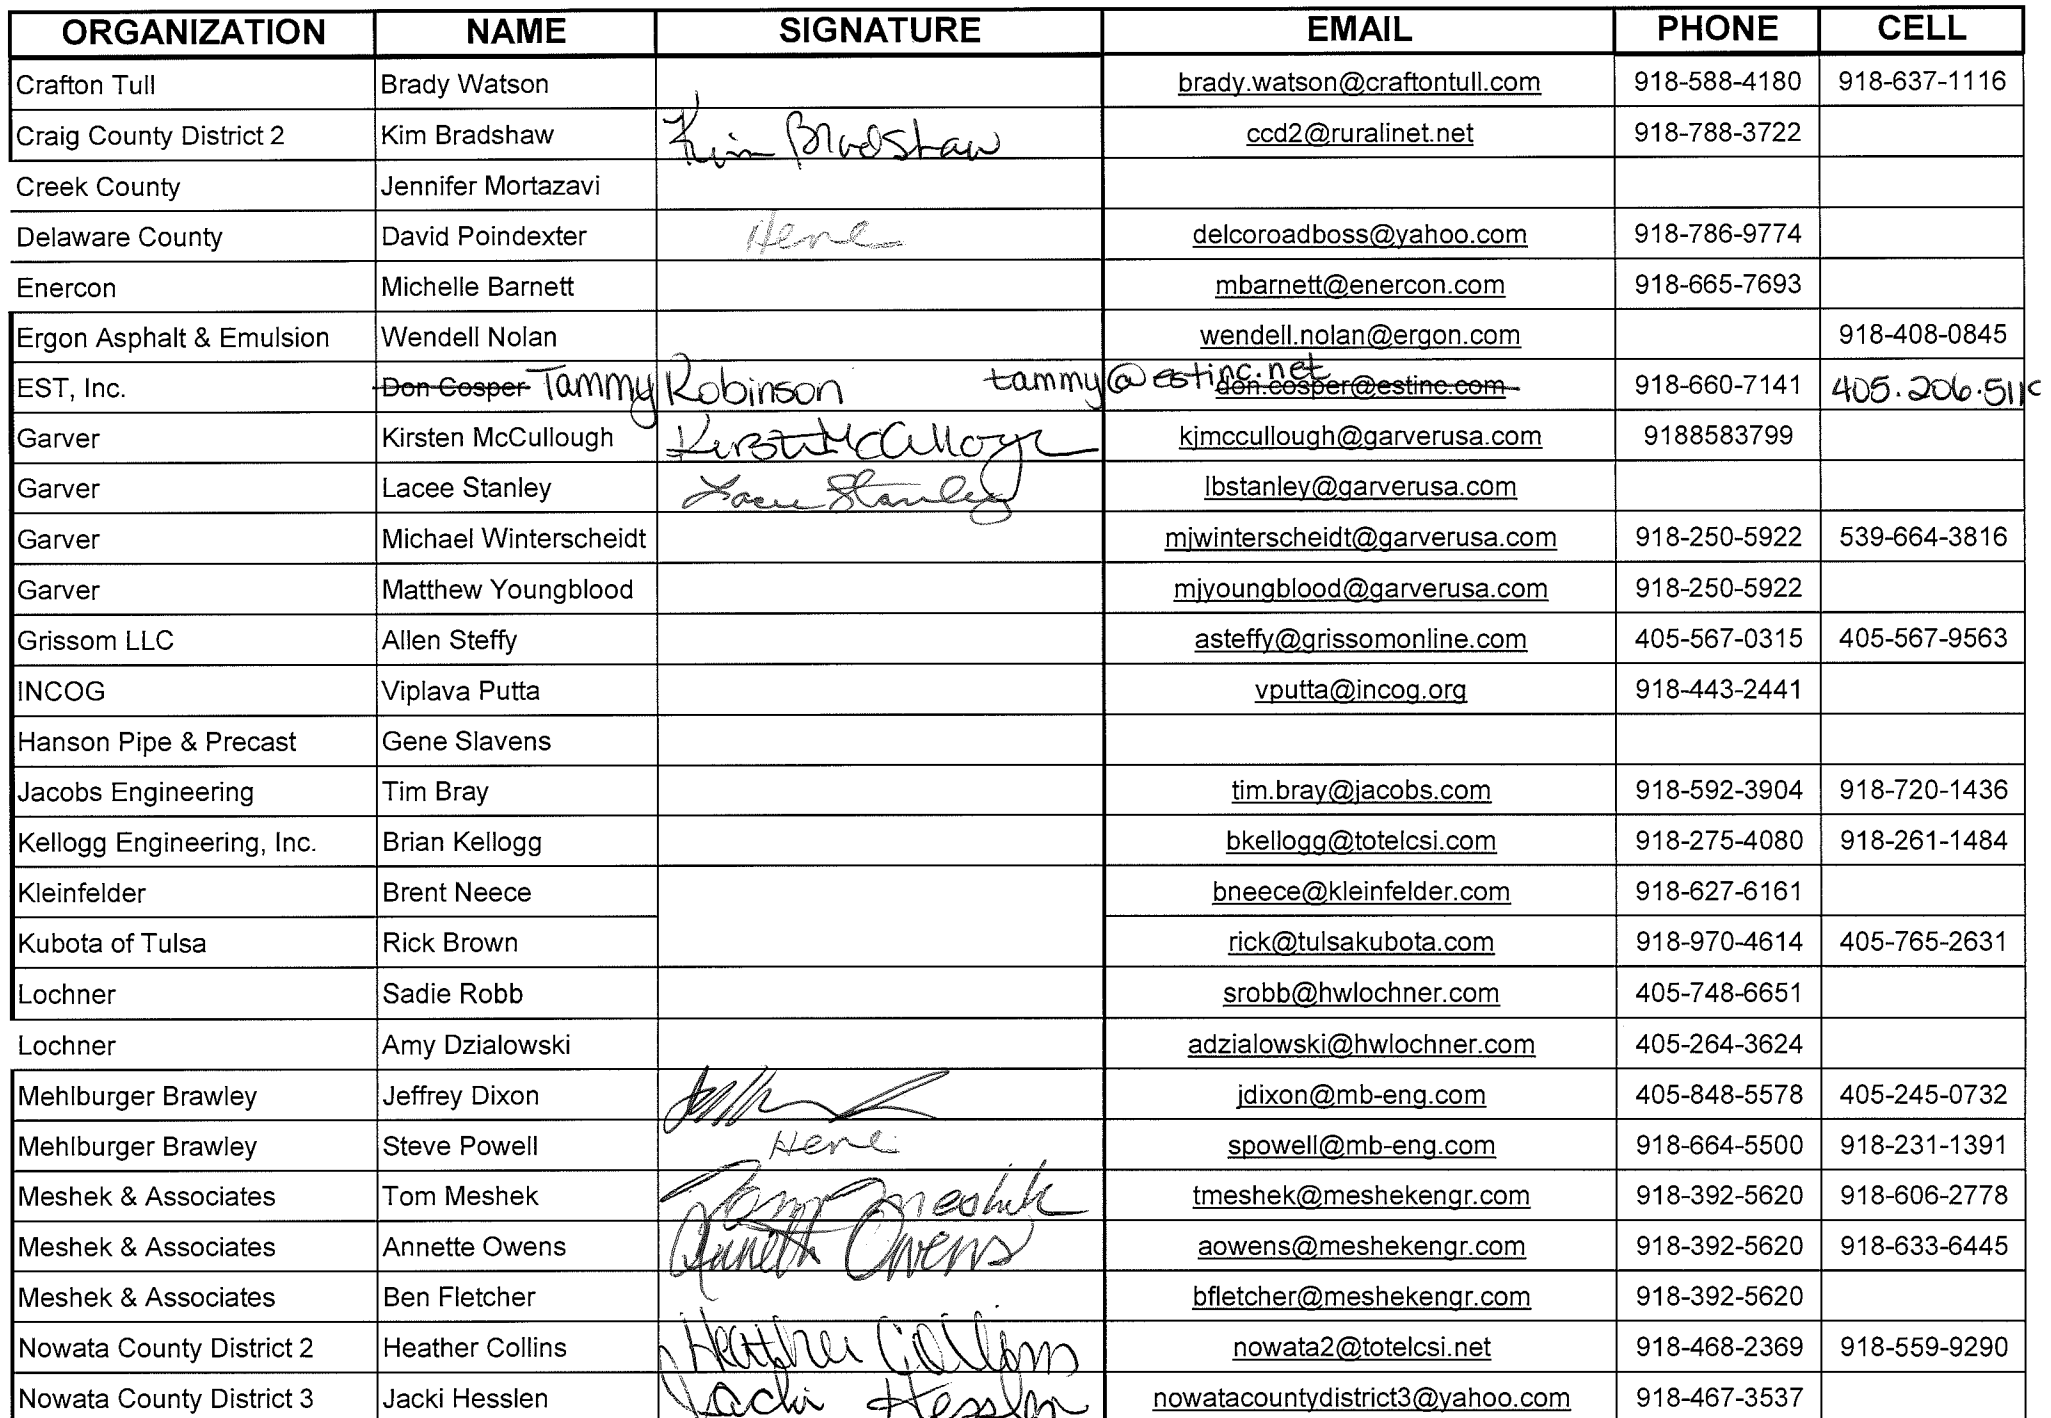 ORGANIZATION NAME SIGNATURE EMAIL PHONE CELL
Crafton Tull Brady Watson brady.watson@craftontull.com 918-588-4180 918-637-1116
Craig County District 2 Kim Bradshaw Kim Bradshaw ccd2@ruralinet.net 918-788-3722
Creek County Jennifer Mortazavi
Delaware County David Poindexter Here delcoroadboss@yahoo.com 918-786-9774
Enercon Michelle Barnett mbarnett@enercon.com 918-665-7693
Ergon Asphalt & Emulsion Wendell Nolan wendell.nolan@ergon.com 918-408-0845
EST, Inc. Don Cosper Tammy Robinson tammy@estinc.net don.cosper@estinc.com 918-660-7141
Garver Kirsten McCullough Kirsten McCullough kjmccullough@garverusa.com 9188583799
Garver Lacee Stanley Lacee Stanley lbstanley@garverusa.com
Garver Michael Winterscheidt mjwinterscheidt@garverusa.com 918-250-5922 539-664-3816
Garver Matthew Youngblood mjyoungblood@garverusa.com 918-250-5922
Grissom LLC Allen Steffy asteffy@grissomonline.com 405-567-0315 405-567-9563
INCOG Viplava Putta vputta@incog.org 918-443-2441
Hanson Pipe & Precast Gene Slavens
Jacobs Engineering Tim Bray tim.bray@jacobs.com 918-592-3904 918-720-1436
Kellogg Engineering, Inc. Brian Kellogg bkellogg@totelcsi.com 918-275-4080 918-261-1484
Kleinfelder Brent Neece bneece@kleinfelder.com 918-627-6161
Kubota of Tulsa Rick Brown rick@tulsakubota.com 918-970-4614 405-765-2631
Lochner Sadie Robb srobb@hwlochner.com 405-748-6651
Lochner Amy Dzialowski adzialowski@hwlochner.com 405-264-3624
Mehlburger Brawley Jeffrey Dixon jdixon@mb-eng.com 405-848-5578 405-245-0732
Mehlburger Brawley Steve Powell Here spowell@mb-eng.com 918-664-5500 918-231-1391
Meshek & Associates Tom Meshek Tom Meshek tmeshek@meshekengr.com 918-392-5620 918-606-2778
Meshek & Associates Annette Owens Annette Owens aowens@meshekengr.com 918-392-5620 918-633-6445
Meshek & Associates Ben Fletcher bfletcher@meshekengr.com 918-392-5620
Nowata County District 2 Heather Collins Heather Collins nowata2@totelcsi.net 918-468-2369 918-559-9290
Nowata County District 3 Jacki Hesslen Jacki Hesslen nowatacountydistrict3@yahoo.com 918-467-3537